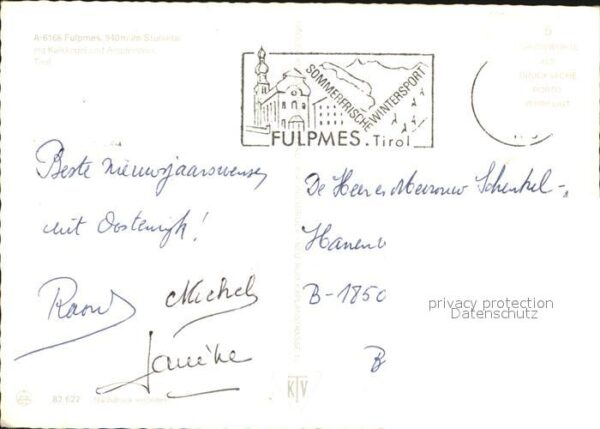 A-6166 Fulpmes, 940 m, im Stubaital
mit Kalkkögel und Ampferstein,
Tirol
SOMMERFRISCHE
WINTERSPORT
FULPMES. Tirol
Beste nieuwjaarswensen
uit Oostenrijk!
Raoul Michel
Janine
De Heer en Mevrouw Schenkel-
B-1850
B
privacy protection
Datenschutz
82 622
KTV